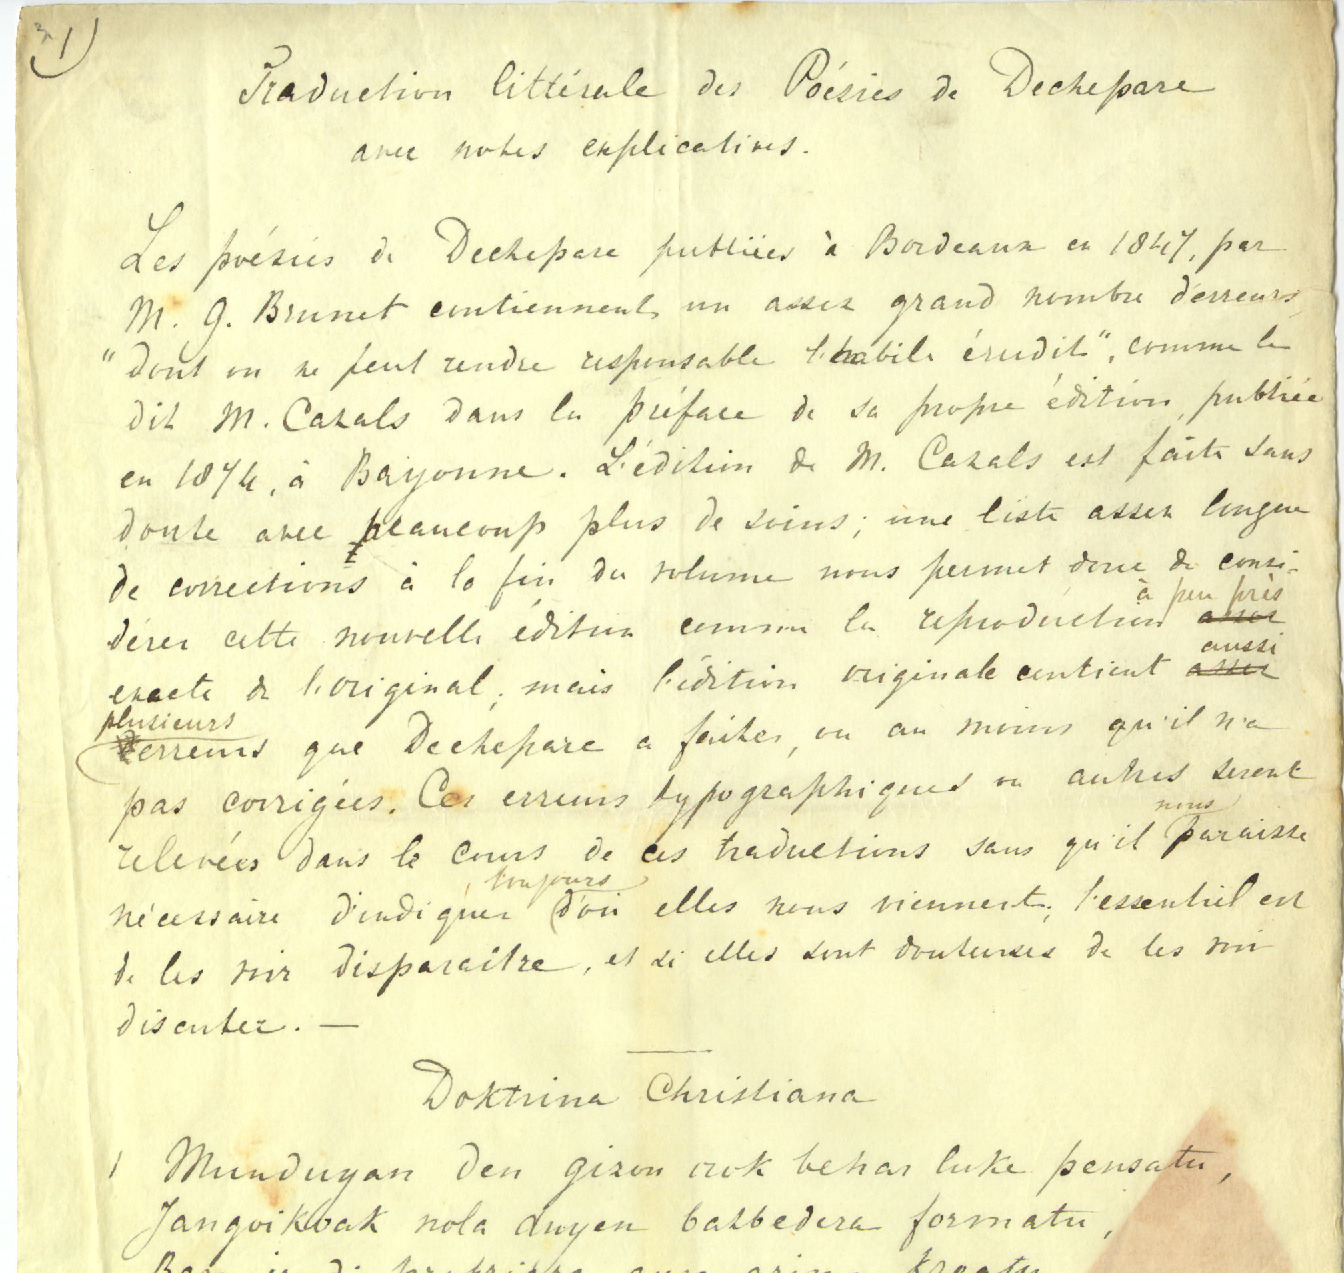 1)
Traduction littérale des Poésies de Dechepare
avec notes explicatives.
Les poésies de Dechepare publiées à Bordeaux en 1847, par
M. G. Brunet contiennent un assez grand nombre d'erreurs,
"dont on ne peut rendre responsable l'habile érudit", comme le
dit M. Cazals dans la préface de sa propre édition, publiée
en 1874, à Bayonne. L'édition de M. Cazals est faite sans
doute avec beaucoup plus de soins; une liste assez longue
de corrections à la fin du volume nous permet donc de consi-
à peu près
dérer cette nouvelle édition comme la reproduction assez
aussi
exacte de l'original; mais l'édition originale contient assez
plusieurs
erreurs que Dechepare a faites, ou au moins qu'il n'a
pas corrigées. Ces erreurs typographiques ou autres seront
nous
relevées dans le cours de ces traductions sans qu'il paraisse
toujours
nécessaire d'indiquer d'où elles nous viennent; l'essentiel est
de les voir disparaître, et si elles sont douteuses de les voir
discuter. —
Doktrina Christiana
1 Munduyan den gizon orok behar luke pensatu,
Jangoikoak nola duyen batbedera formatu,